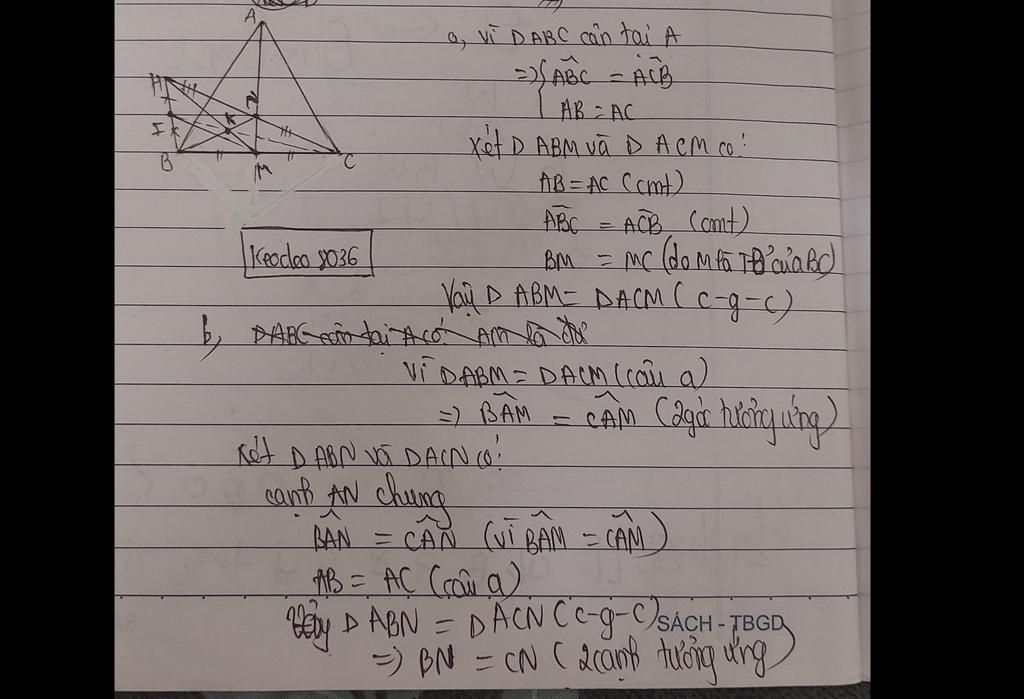 A
H
N
I
K
B
M
C
Keodeo 8036
a, Vì Δ ABC cân tại A
=> { ABĈ = ACB̂
AB = AC
Xét Δ ABM và Δ ACM có:
AB = AC (cmt)
ABĈ = ACB̂ (cmt)
BM = MC (do M là TĐ của BC)
Vậy Δ ABM = Δ ACM (c-g-c)
b, ΔABC cân tại A có AM là đg
Vì Δ ABM = Δ ACM (câu a)
=> BÂM = CÂM (2 góc tương ứng)
Xét Δ ABN và Δ ACN có:
cạnh AN chung
BÂN = CÂN (vì BÂM = CÂM)
AB = AC (câu a)
Vậy Δ ABN = Δ ACN (c-g-c)
SÁCH - TBGD
=> BN = CN (2 cạnh tương ứng)